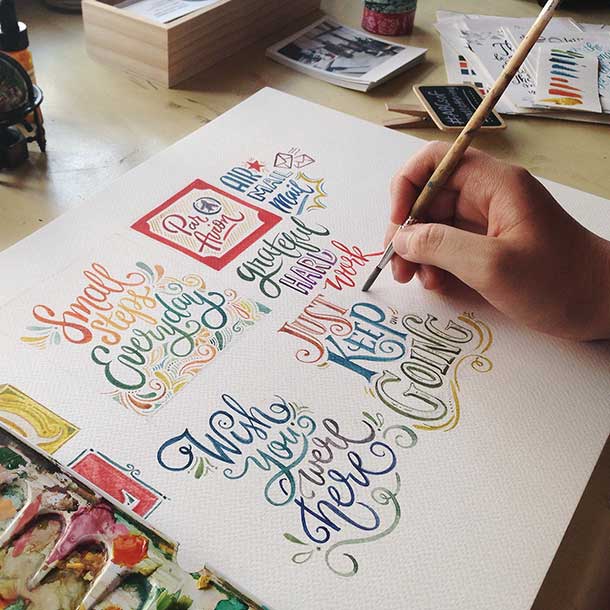 AIR
MAIL
Mail
Par
Avion
Grateful
HARD
Work
Small
Steps
Everyday
JUST
KEEP
ON
GOING
Wish
You
were
here